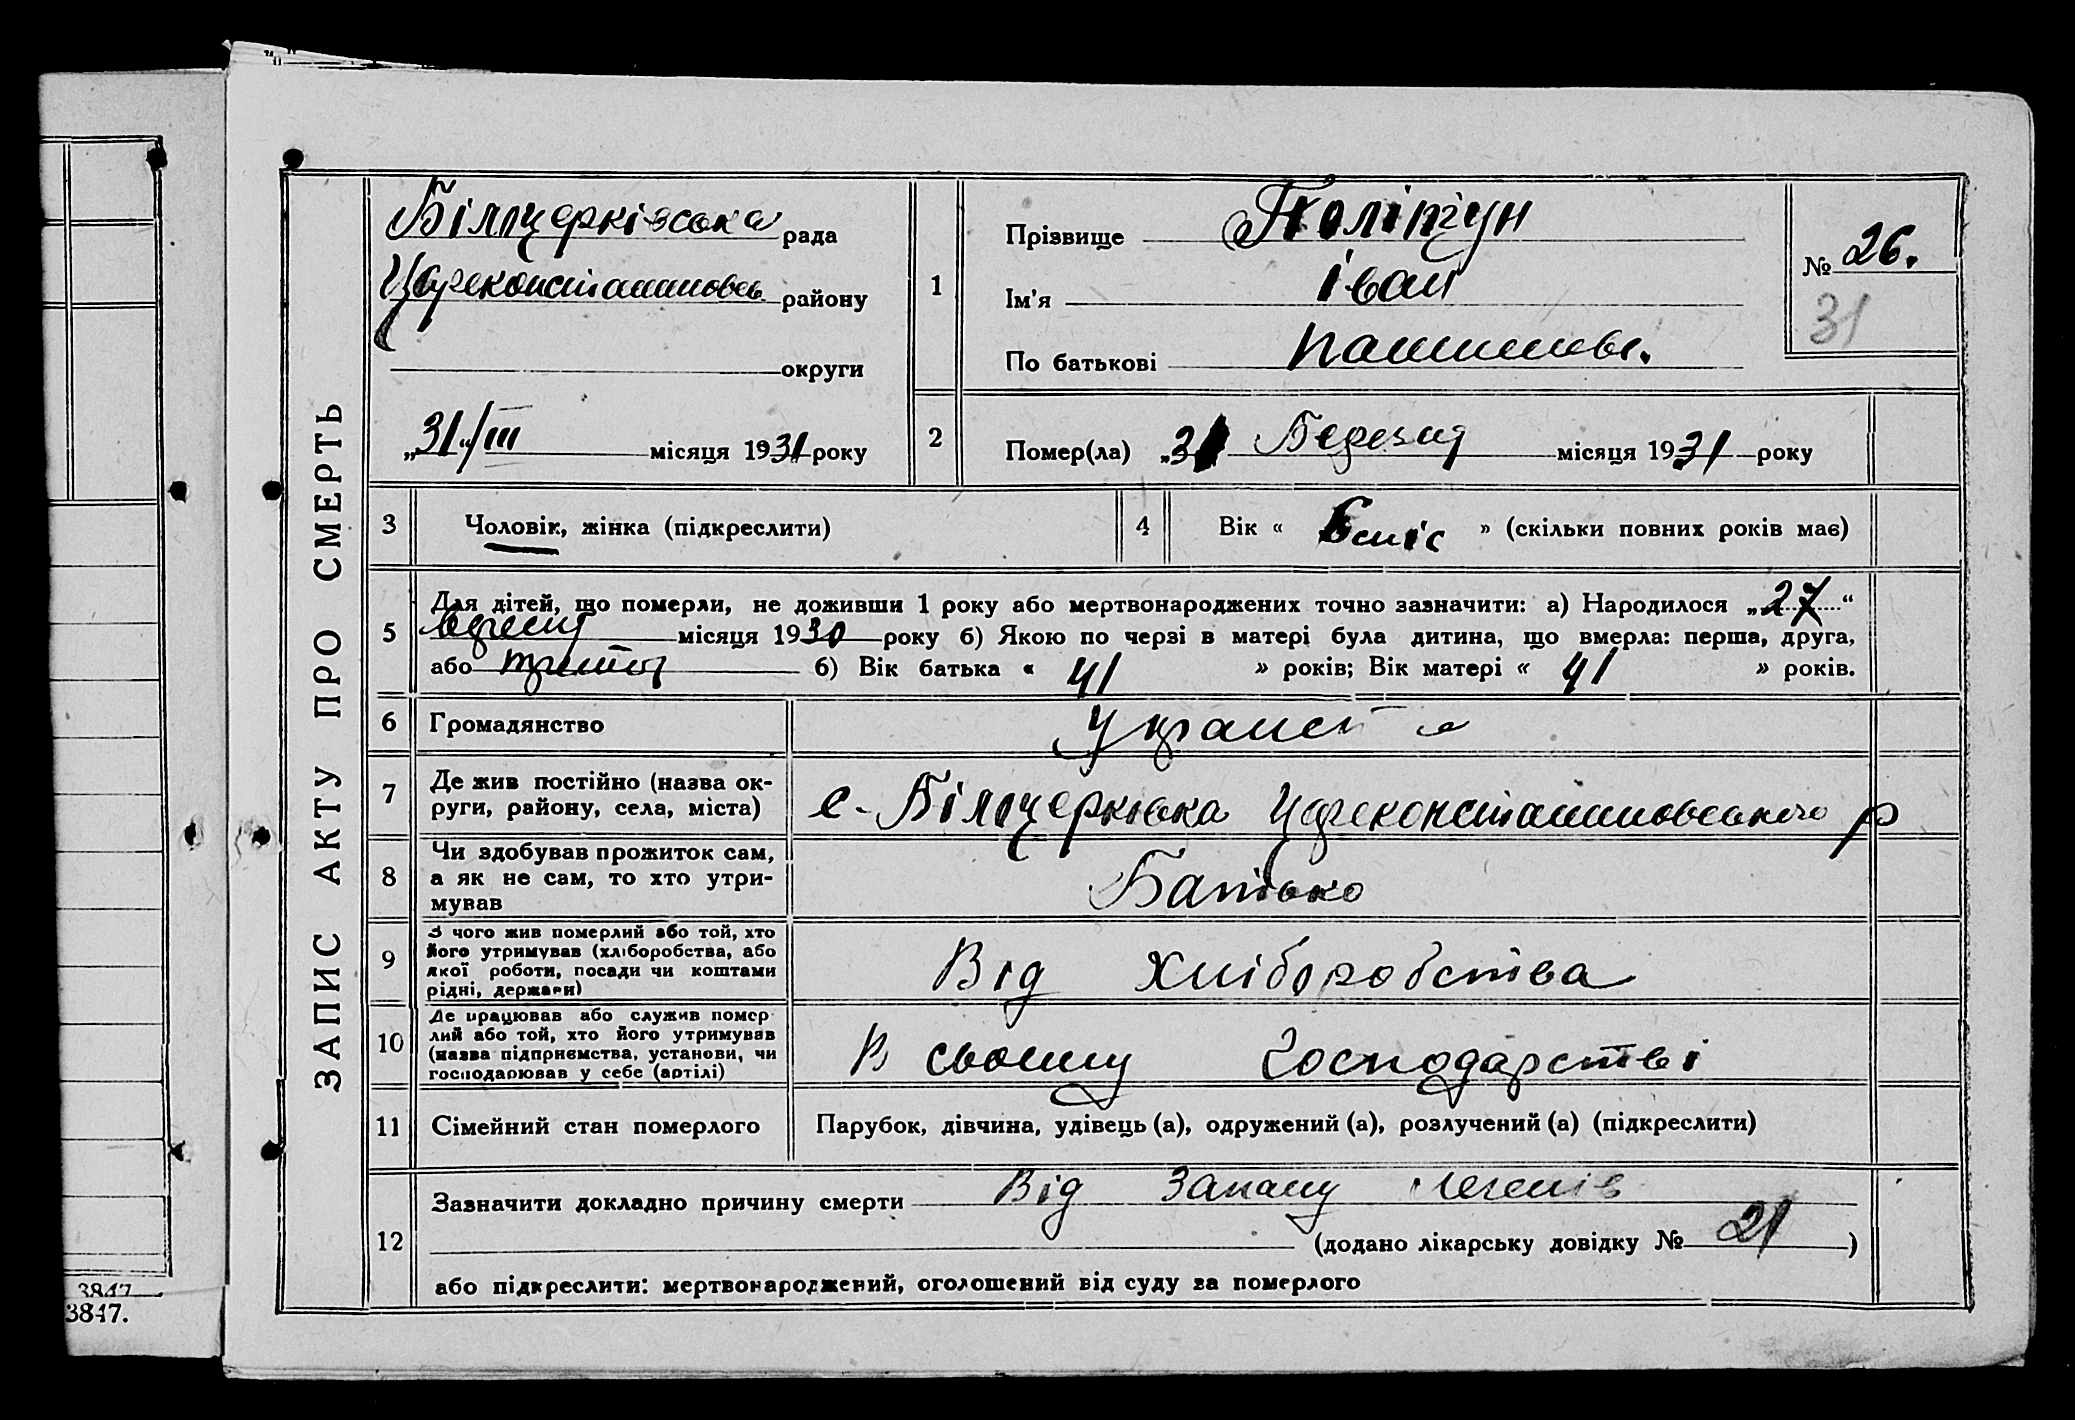 ЗАПИС АКТУ ПРО СМЕРТЬ
Білоцерківська рада
Цареконстантиновськ району
округи
„31“/III місяця 1931 року
1
Прізвище Политун
Ім'я Іван
По батькові
№ 26.
31
2
Помер(ла) „31 Березня місяця 1931 року
3
Чоловік, жінка (підкреслити)
4
Вік « 6 міс » (скільки повних років має)
5
Для дітей, що померли, не доживши 1 року або мертвонароджених точно зазначити: а) Народилося „27“
місяця 1930 року б) Якою по черзі в матері була дитина, що вмерла: перша, друга,
або третя б) Вік батька « 41 » років; Вік матері « 41 » років.
6
Громадянство
7
Де жив постійно (назва ок-
руги, району, села, міста)
с. Білоцерківка Цареконстантиновського р
8
Чи здобував прожиток сам,
а як не сам, то хто утри-
мував
Батько
9
З чого жив померлий або той, хто
його утримував (хліборобства, або
якої роботи, посади чи коштами
рідні, держави)
Від хліборобства
10
Де працював або служив помер
лий або той, хто його утримував
(назва підприємства, установи, чи
господарював у себе (артілі)
В свойму господарстві
11
Сімейний стан померлого
Парубок, дівчина, удівець (а), одружений (а), розлучений (а) (підкреслити)
12
Зазначити докладно причину смерти Від запалу легенів
(додано лікарську довідку № 21)
або підкреслити: мертвонароджений, оголошений від суду за померлого
3847.
3847.